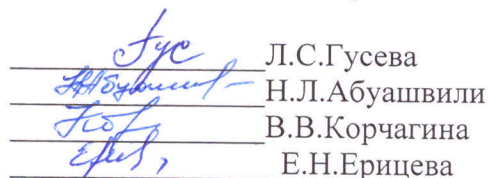 Гус Л.С.Гусева
Н.Л.Абуашвили
В.В.Корчагина
Е.Н.Ерицева